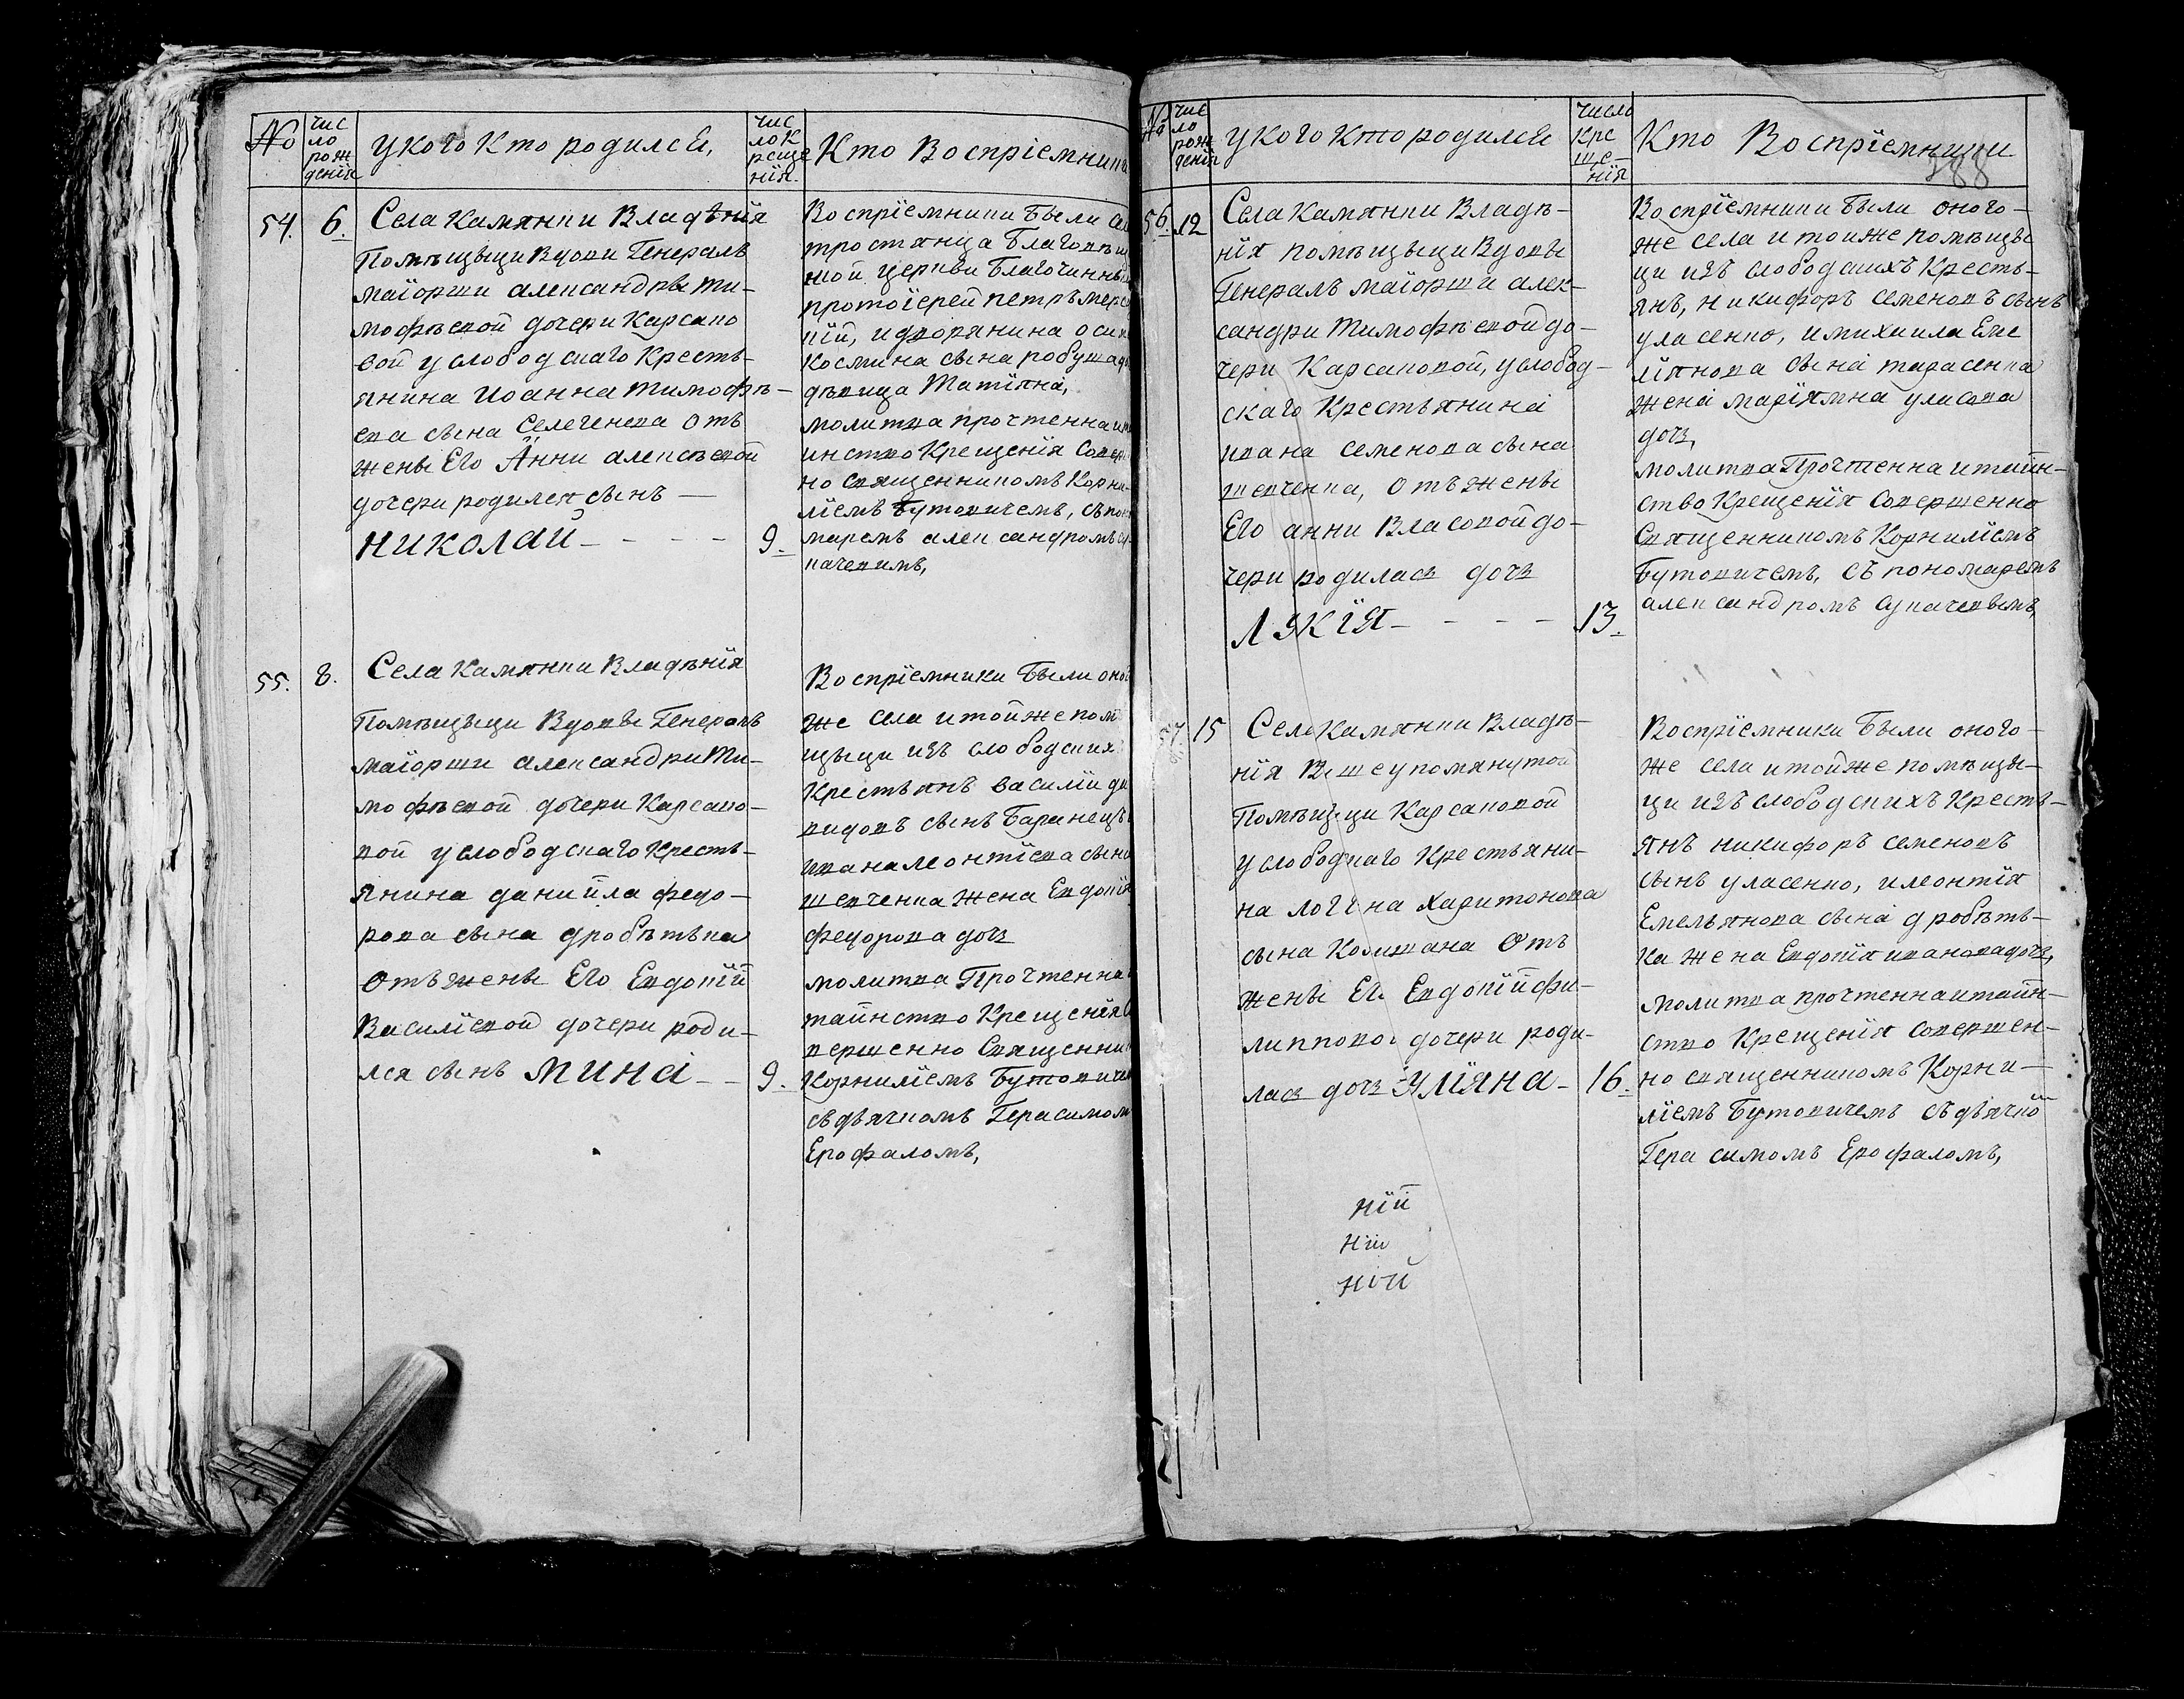 №
чис
ло
рож
денїя
У кого Кто родилсѧ,
чис
ло К
реще
нїя.
Кто Воспрїемники
54.
6.
Села Камянки Владѣнїя
Помѣщыци Вдови Генералъ
маїорши александры Ти-
мофѣевой дочери Карсако
вой у слободскаго Кресть-
янина Иоанна тимофѣ-
ева сына Селегенева Отъ
жены Его Анни алексѣевой
дочери родился сынъ —
николай - - - -
9.
Воспрїемники были
тростянца Благовѣщ
ной церкви Благочинный
протоїерей петръ
кїй, и дворянина осипа
космина сына
дѣвица Татїяна,
молитва прочтенна и
инство Крещенїя Совер
но священникомъ Корни-
лїемъ Бутовичемъ, съ поно
маремъ александромъ су
качевимъ,
55.
8.
Села Камянки Владѣнїя
Помѣщыци Вдовы Генералъ
маїорши александри Ти-
мофѣевой дочери Карсако-
вой у слободскаго Кресть-
янина данїила федо-
рова сына дробѣтька
Отъ жены Его Евдокїй
Василїевой дочери роди-
лся сынъ Мина - -
9.
Воспрїемники были оног
же села и тойже пом
щыци изъ слободских
Крестьянъ василїй да
видовъ сынъ Баранецъ
ивана леонтїева сына
шевченка жена Евдокїя
федорова доч
молитва Прочтенна
таинство Крещенїя С
вершенно Священни
Корнилїемъ Бутовиче
съ дьячкомъ Герасимом
Ерофаломъ,
№
чис
ло
рож
денїя
У кого Кто родилсѧ
число
Кре
ще-
нїя
Кто Воспрїемници
388
56.
12
Села Камянки Владѣ-
нїя помѣщыци Вдовы
Генералъ маїорши алек-
сандри Тимофѣевой до-
чери Карсаковой, у слобод-
скаго Крестьянина
ивана семенова сына
шевченка, отъ жены
Его анни Власовой до-
чери родилась дочь
Лукїя - - - -
13.
Воспрїемники были оного-
же села и тоиже помѣщы
ци изъ слободскихъ Кресть-
янъ, никифоръ семеновъ сынъ
уласенко, и михаила Еме
лїянова сына тарасенка
жена марїямна уласова
дочь,
молитва Прочтенна и таин-
ство Крещенїя Совершенно
Священникомъ Корнилїемъ
Бутовичемъ, съ пономаремъ
александромъ Сукачевымъ,
57.
15
Села Камянки Владѣ-
нїя Вышеупомянутой
Помѣщици Карсаковой
у слободкаго Крестьяни-
на логина харитонова
сына Отъ
жены Его Евдокїй фи-
липповой дочери роди-
лась дочь Улїяна -
16.
Воспрїемники были оного-
же села и тойже помѣщы-
ци изъ слободскихъ Кресть-
янъ никифоръ семеновъ
сынъ уласенко, и леонтїя
Емельянова сына дробѣть-
ка жена Евдокїя иванова дочь,
молитва прочтенна и таин-
ство Крещенїя совершен-
но священникомъ Корни-
лїемъ Бутовичемъ съ дьячко
Герасимомъ Ерофаломъ,
нїй
нїи
ной